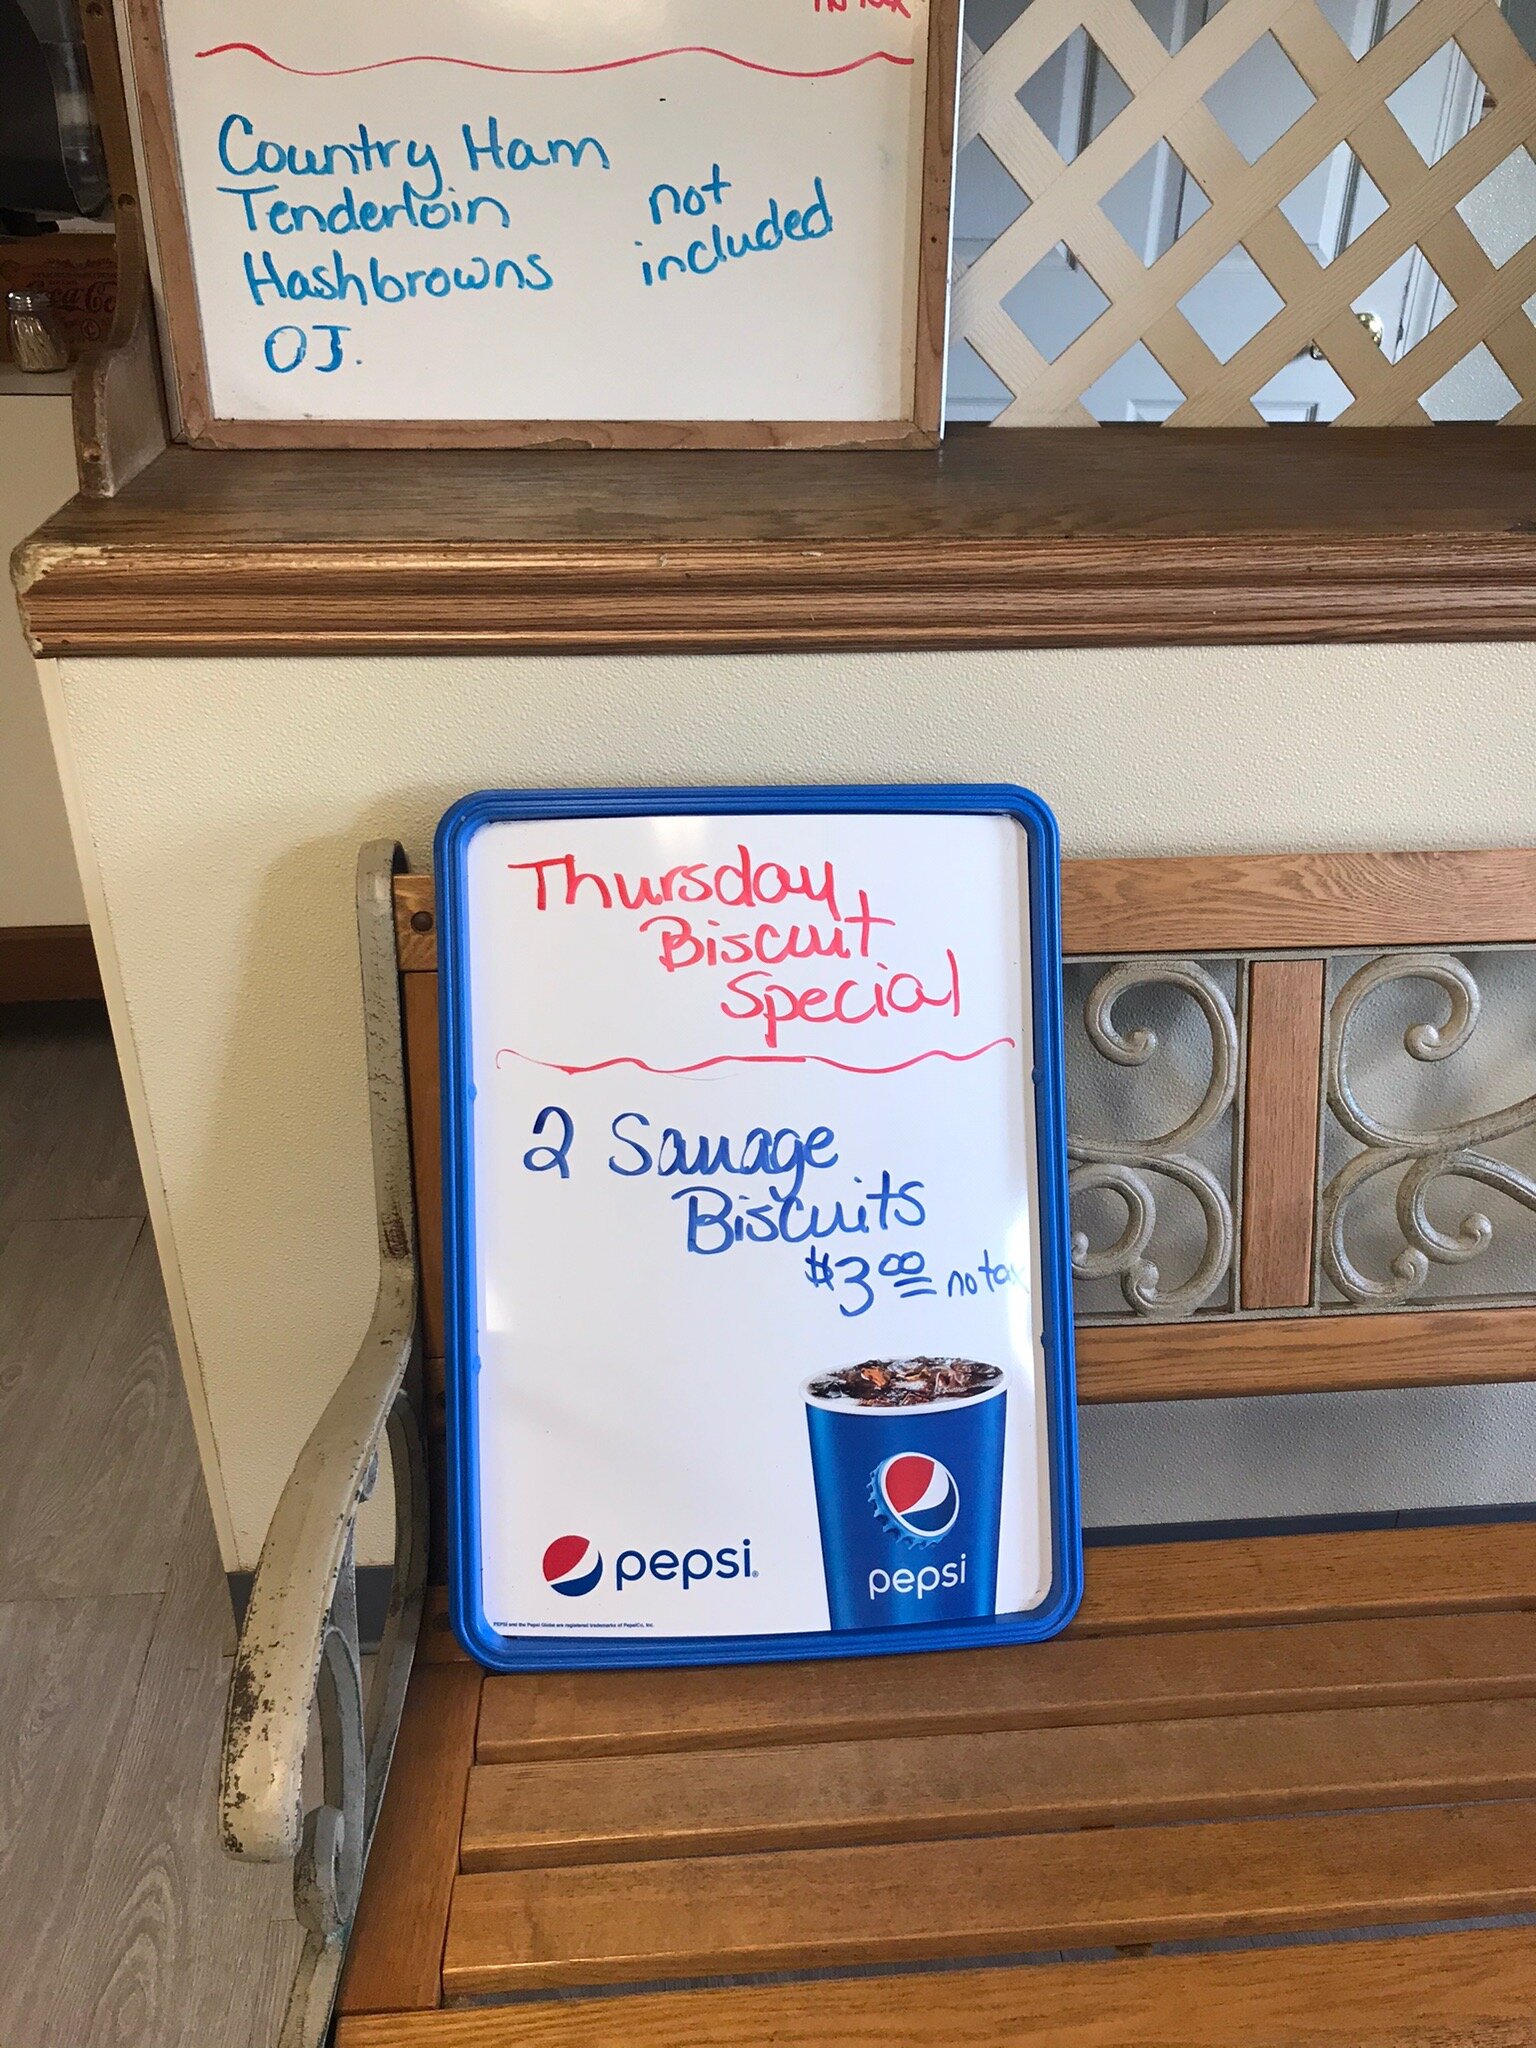 no tax
Country Ham
Tenderloin not
Hashbrowns included
OJ.
Thursday
Biscuit
Special
2 Sauage
Biscuits
$3.00 no tax
pepsi
pepsi
PEPSI and the Pepsi Globe are registered trademarks of PepsiCo, Inc.